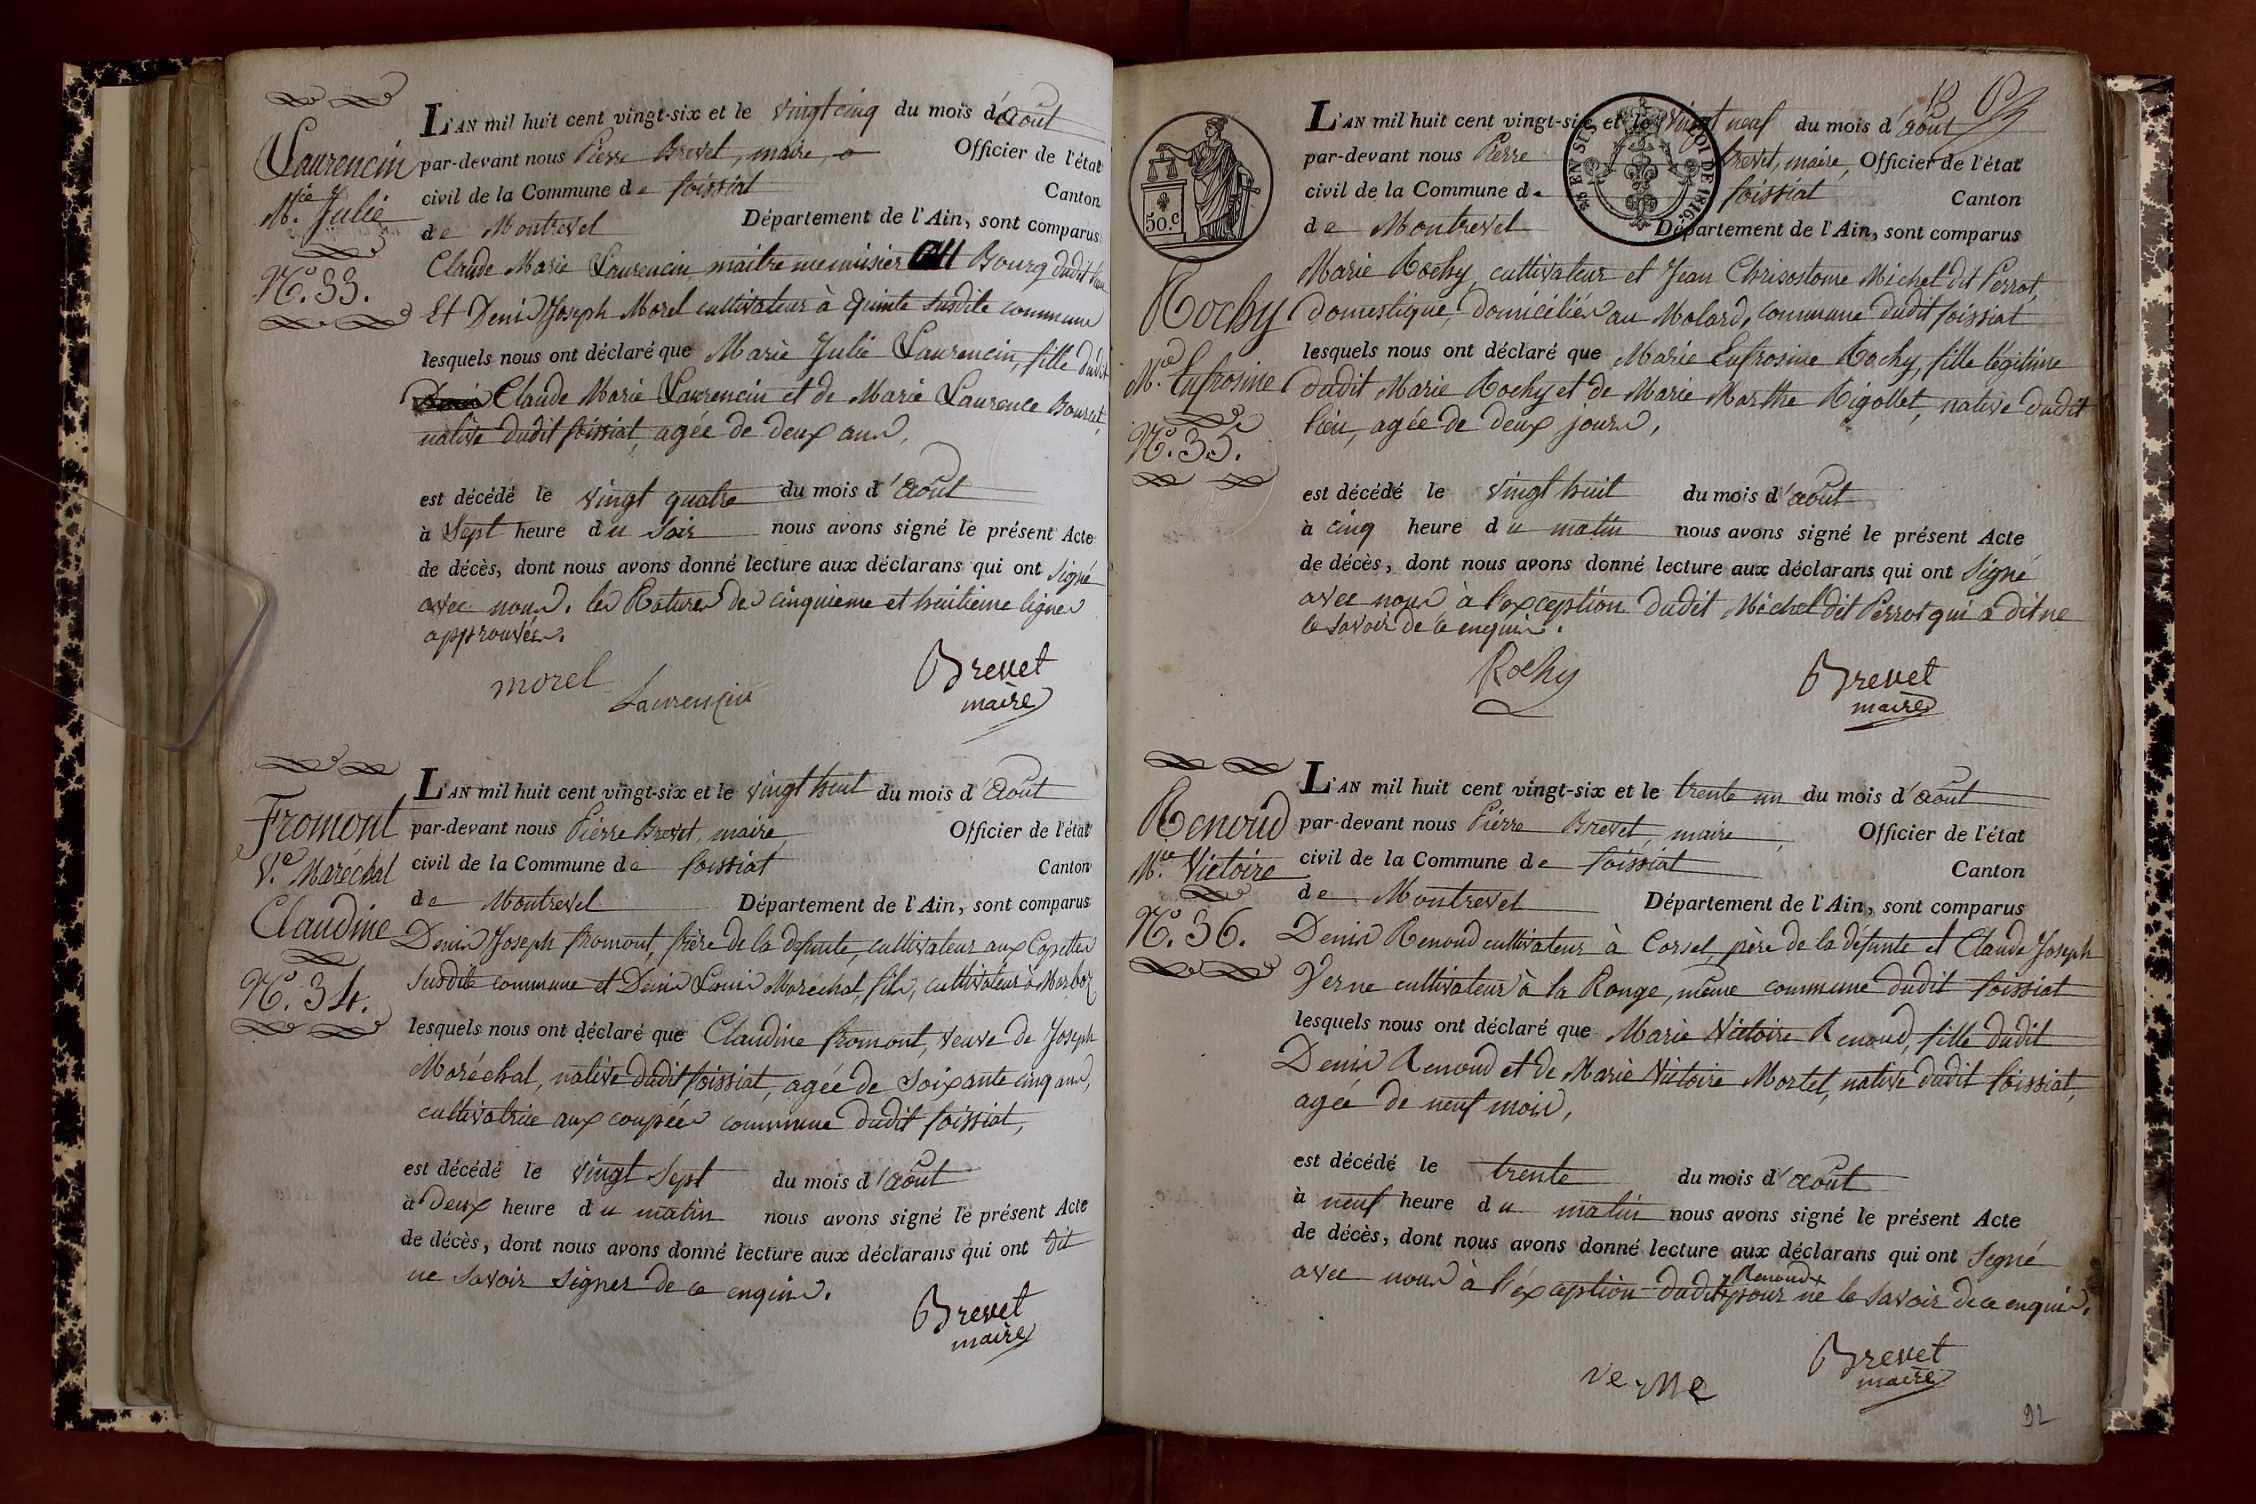 Laurencin
Mie Julie
N.º 33.
L'AN mil huit cent vingt-six et le vingt cinq du mois d'août
par-devant nous Pierre Brevet, maire, Officier de l'état
civil de la Commune de foissiat Canton
de Montrevel Département de l'Ain, sont comparus
Claude Marie Laurencin maitre menuisier au Bourg dudit lieu
Et Denis Joseph Morel cultivateur à Quinte susdite commune
lesquels nous ont déclaré que Marie Julie Laurencin, fille dudit
Claude Marie Laurencin et de Marie Laurence Bourcet,
native dudit foissiat, agée de deux ans,
est décédé le vingt quatre du mois d'août
à sept heure du soir nous avons signé le présent Acte
de décès, dont nous avons donné lecture aux déclarans qui ont signé
avec nous. les Ratures des cinquieme et huitieme lignes
approuvées.
morel Laurencin Brevet
maire
Fromont
Ve. Maréchal
Claudine
N.º 34.
L'AN mil huit cent vingt-six et le vingt huit du mois d'août
par-devant nous Pierre Brevet, maire, Officier de l'état
civil de la Commune de foissiat Canton
de Montrevel Département de l'Ain, sont comparus
Denis Joseph fromont, frère de la defunte, cultivateur aux Copettes
susdite commune et Denis Louis Maréchal, fils, cultivateur à Marboz
lesquels nous ont déclaré que Claudine fromont, veuve de Joseph
Maréchal, native dudit foissiat, agée de soixante cinq ans,
cultivatrice aux coupées commune dudit foissiat,
est décédé le vingt sept du mois d'août
à deux heure du matin nous avons signé le présent Acte
de décès, dont nous avons donné lecture aux déclarans qui ont dit
ne savoir signer de ce enquis.
Brevet
maire
18
50.c
EN SUS LOI DE 1816.
Rochy
Mie Eufrosine
N.º 35.
L'AN mil huit cent vingt-six et le vingt neuf du mois d'août
par-devant nous Pierre Brevet, maire, Officier de l'état
civil de la Commune de foissiat Canton
de Montrevel Département de l'Ain, sont comparus
Marie Rochy, cultivateur et Jean Chrisostome Michel dit Perrot,
domestique, domiciliés au Molard, commune dudit foissiat
lesquels nous ont déclaré que Marie Eufrosine Rochy, fille légitime
dudit Marie Rochy et de Marie Marthe Rigollet, native dudit
lieu, agée de deux jours,
est décédé le vingt huit du mois d'août
à cinq heure du matin nous avons signé le présent Acte
de décès, dont nous avons donné lecture aux déclarans qui ont signé
avec nous à l'exception dudit Michel dit Perrot qui a dit ne
le savoir de ce enquis.
Rochy Brevet
maire
Renoud
Mie Victoire
N.º 36.
L'AN mil huit cent vingt-six et le trente un du mois d'août
par-devant nous Pierre Brevet, maire, Officier de l'état
civil de la Commune de foissiat Canton
de Montrevel Département de l'Ain, sont comparus
Denis Renoud cultivateur à Corsel, père de la défunte et Claude Joseph
Verne cultivateur à la Ronge, même commune dudit foissiat
lesquels nous ont déclaré que Marie Victoire Renoud, fille dudit
Denis Renoud et de Marie Victoire Mortel, native dudit foissiat,
agée de neuf mois,
est décédé le trente du mois d'août
à neuf heure du matin nous avons signé le présent Acte
de décès, dont nous avons donné lecture aux déclarans qui ont signé
Renoud
avec nous à l'éxception dudit pour ne le savoir de ce enquis.
verne Brevet
maire
92